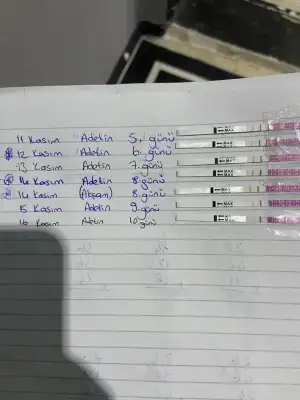 11 Kasım Adetin 5. günü
12 Kasım Adetin 6. günü
13 Kasım Adetin 7. günü
14 Kasım Adetin 8. günü
14 Kasım (Akşam) 8. günü
15 Kasım Adetin 9. günü
16 Kasım Adetin 10. günü
MAX
MAX
MAX
MAX
MAX
MAX